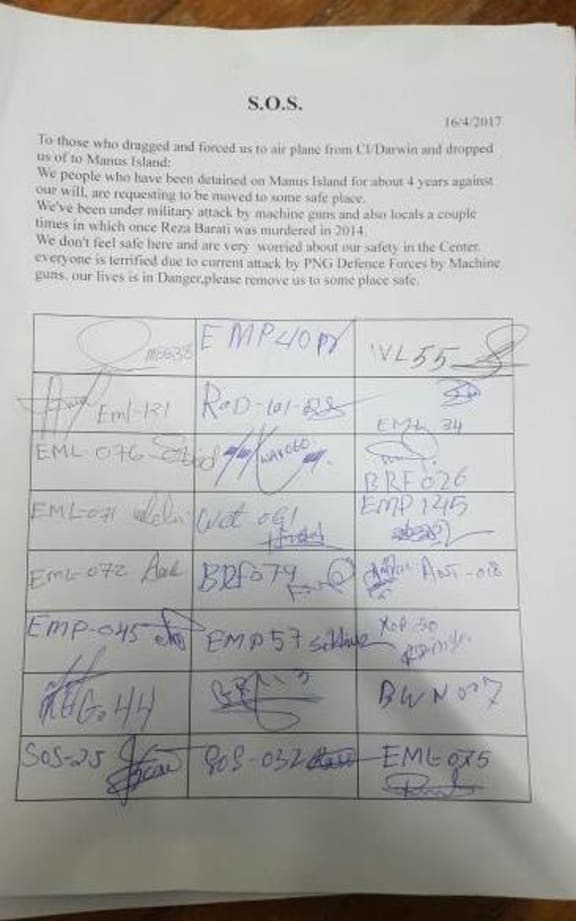 S.O.S.
16/4/2017
To those who dragged and forced us to air plane from CI/Darwin and dropped
us of to Manus Island:
We people who have been detained on Manus Island for about 4 years against
our will, are requesting to be moved to some safe place.
We've been under military attack by machine guns and also locals a couple
times in which once Reza Barati was murdered in 2014.
We don't feel safe here and are very worried about our safety in the Center.
everyone is terrified due to current attack by PNG Defence Forces by Machine
guns. our lives is in Danger,please remove us to some place safe.
MEG38
VL55
Eml-131
ROD-101
EML 34
EML-076
BRF026
EML-071
EMP 145
EML-072
BRF074
EMP-045
EMP 57
BWN007
SOS-25
SOS-032
EML-075